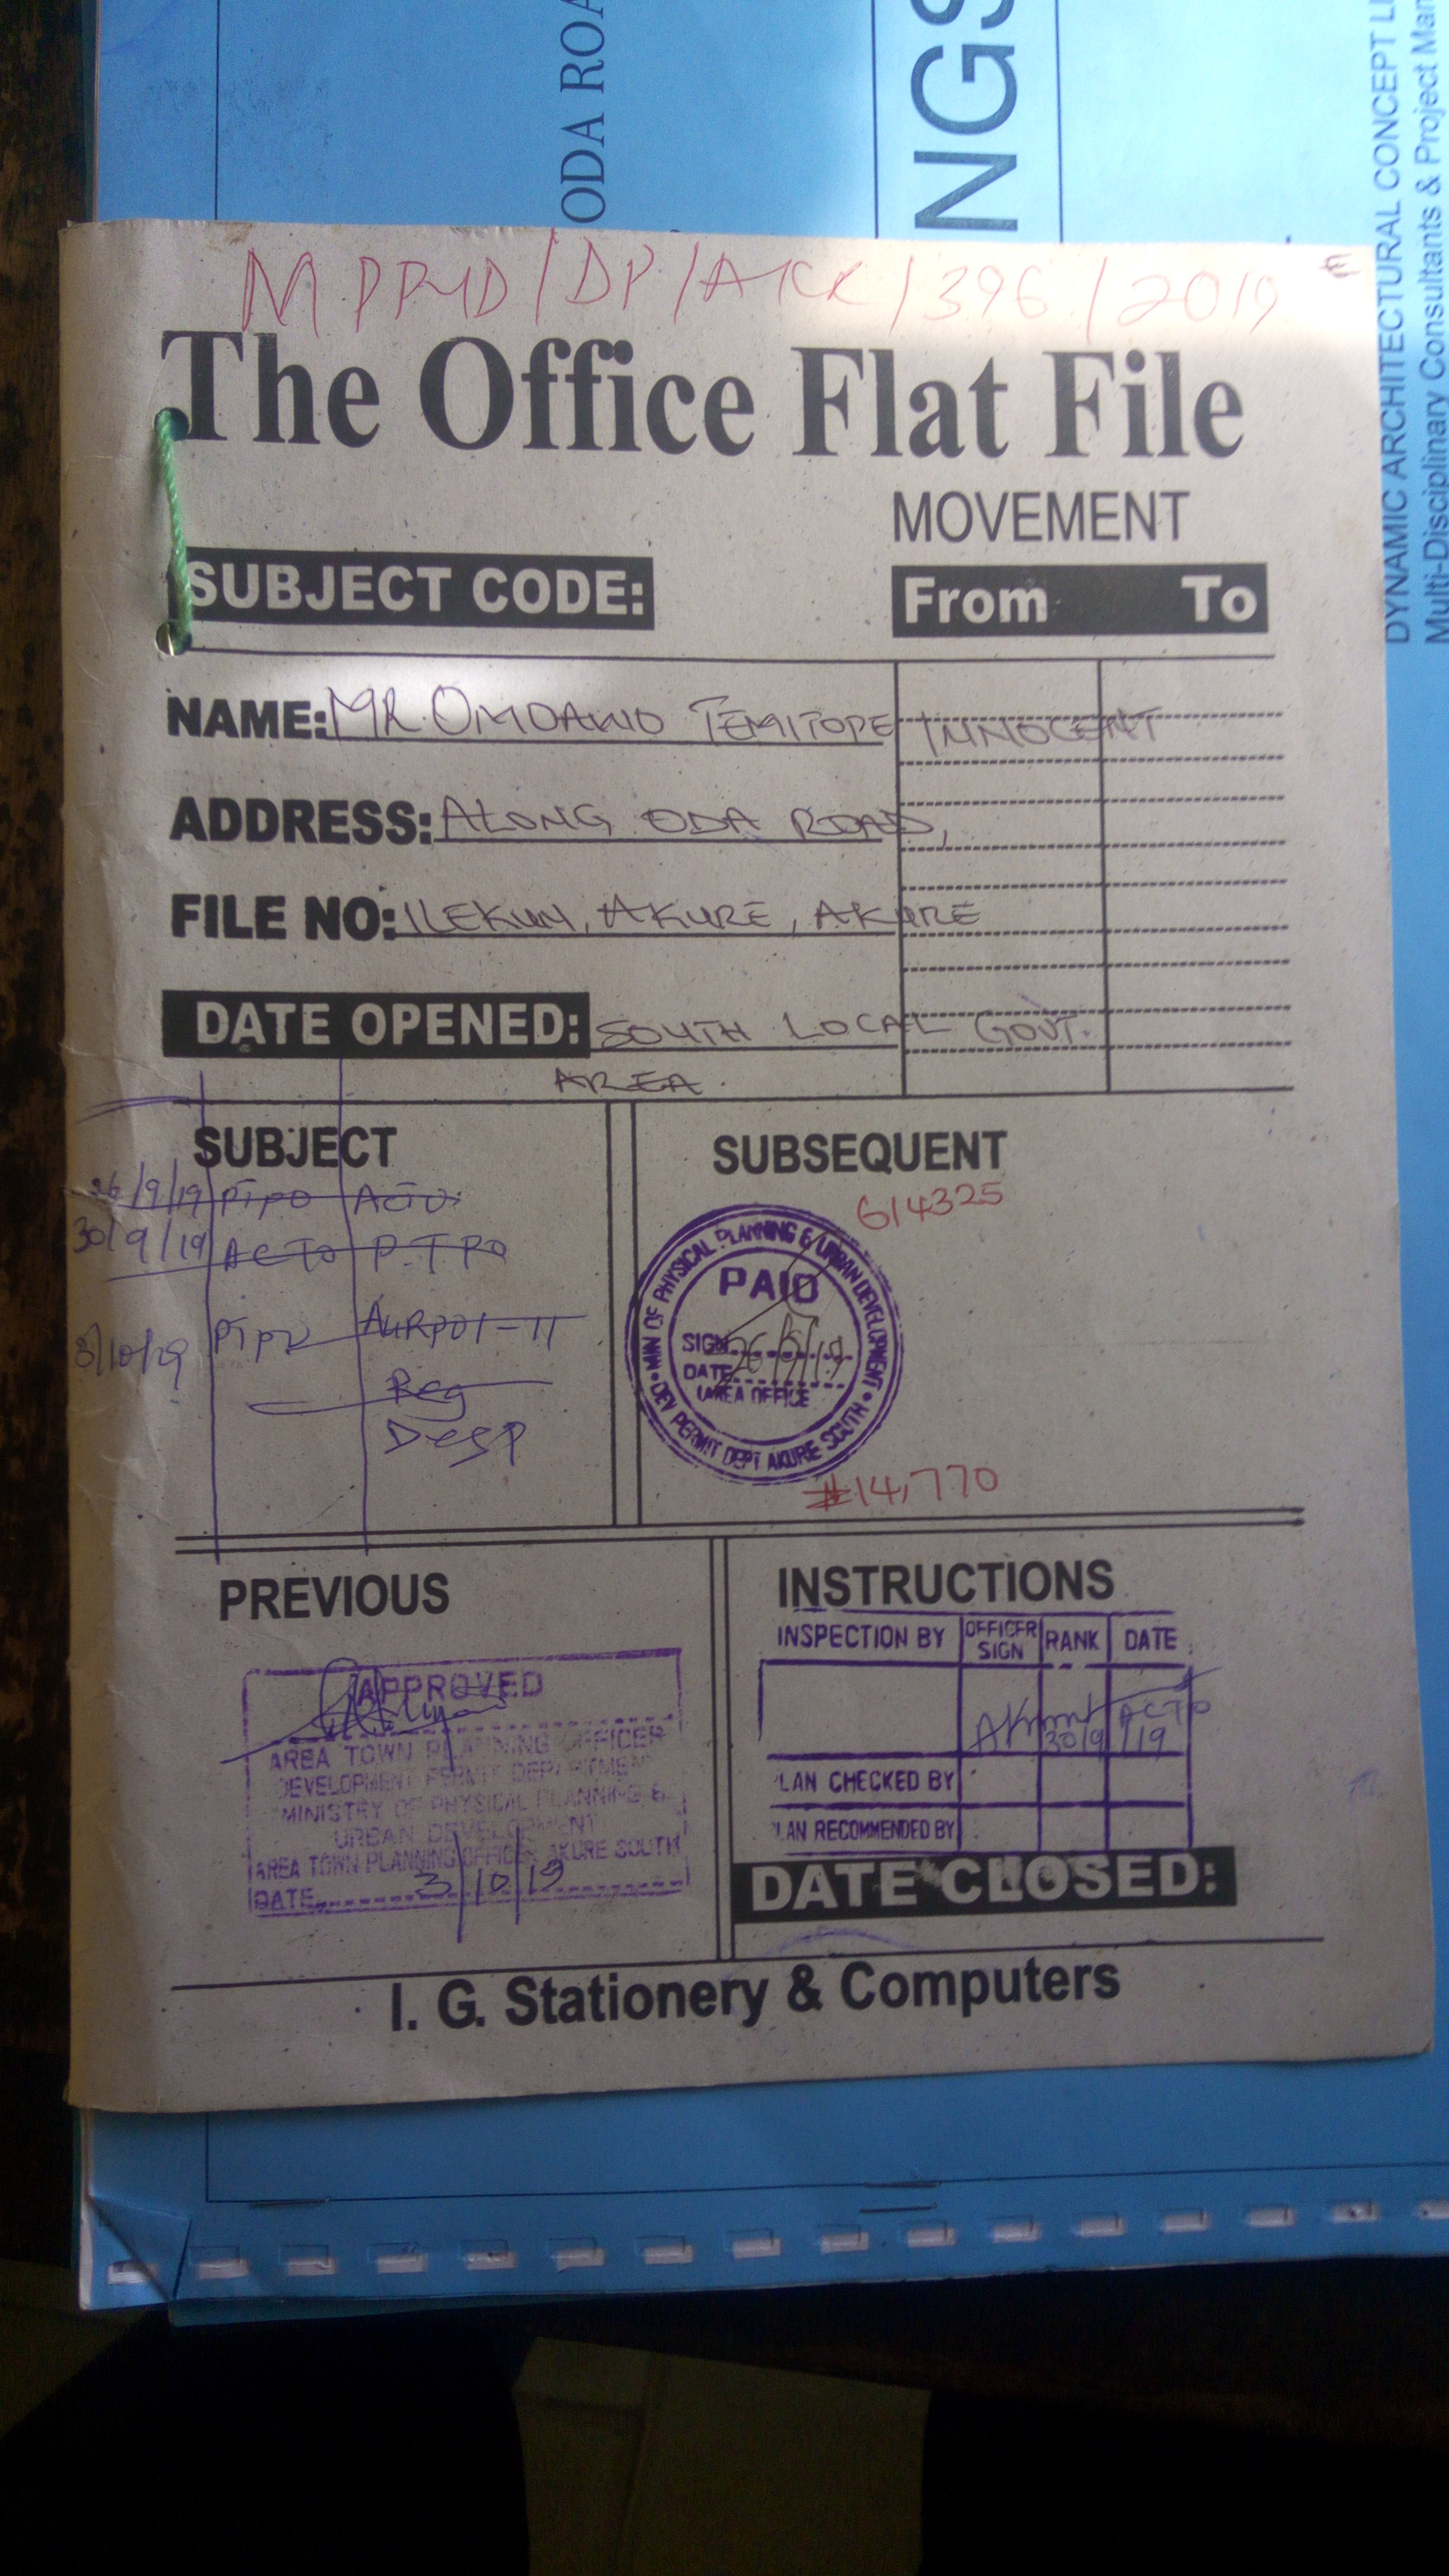 ODA ROA
NGS
DYNAMIC ARCHITECTURAL CONCEPT LI
Multi-Disciplinary Consultants & Project Man
MPPUD/DP/AKR/396/2019
The Office Flat File
MOVEMENT
SUBJECT CODE:
From To
NAME: MR. OMOAWO TEMITOPE INNOCENT
ADDRESS: ALONG ODA ROAD,
FILE NO: ILEKUN, AKURE, AKURE
DATE OPENED: SOUTH LOCAL GOVT.
AREA.
SUBJECT
26/9/19 PTPO
30/9/19 ACTO P.T.P.O
3/10/19
Reg
Desp
SUBSEQUENT
614325
MIN OF PHYSICAL PLANNING & URBAN DEVELOPMENT
PAID
SIGN
DATE 26/9/19
AREA OFFICE
DEV PERMIT DEPT AKURE SOUTH
#14,770
PREVIOUS
APPROVED
AREA TOWN PLANNING OFFICER
DEVELOPMENT PERMIT DEPARTMEN
MINISTRY OF PHYSICAL PLANNING &
URBAN DEVELOPMENT
AREA TOWN PLANNING OFFICE, AKURE SOUTH
DATE 3/10/19
INSTRUCTIONS
INSPECTION BY OFFICER SIGN RANK DATE
ACTO
30/9/19
LAN CHECKED BY
LAN RECOMMENDED BY
DATE CLOSED:
I. G. Stationery & Computers